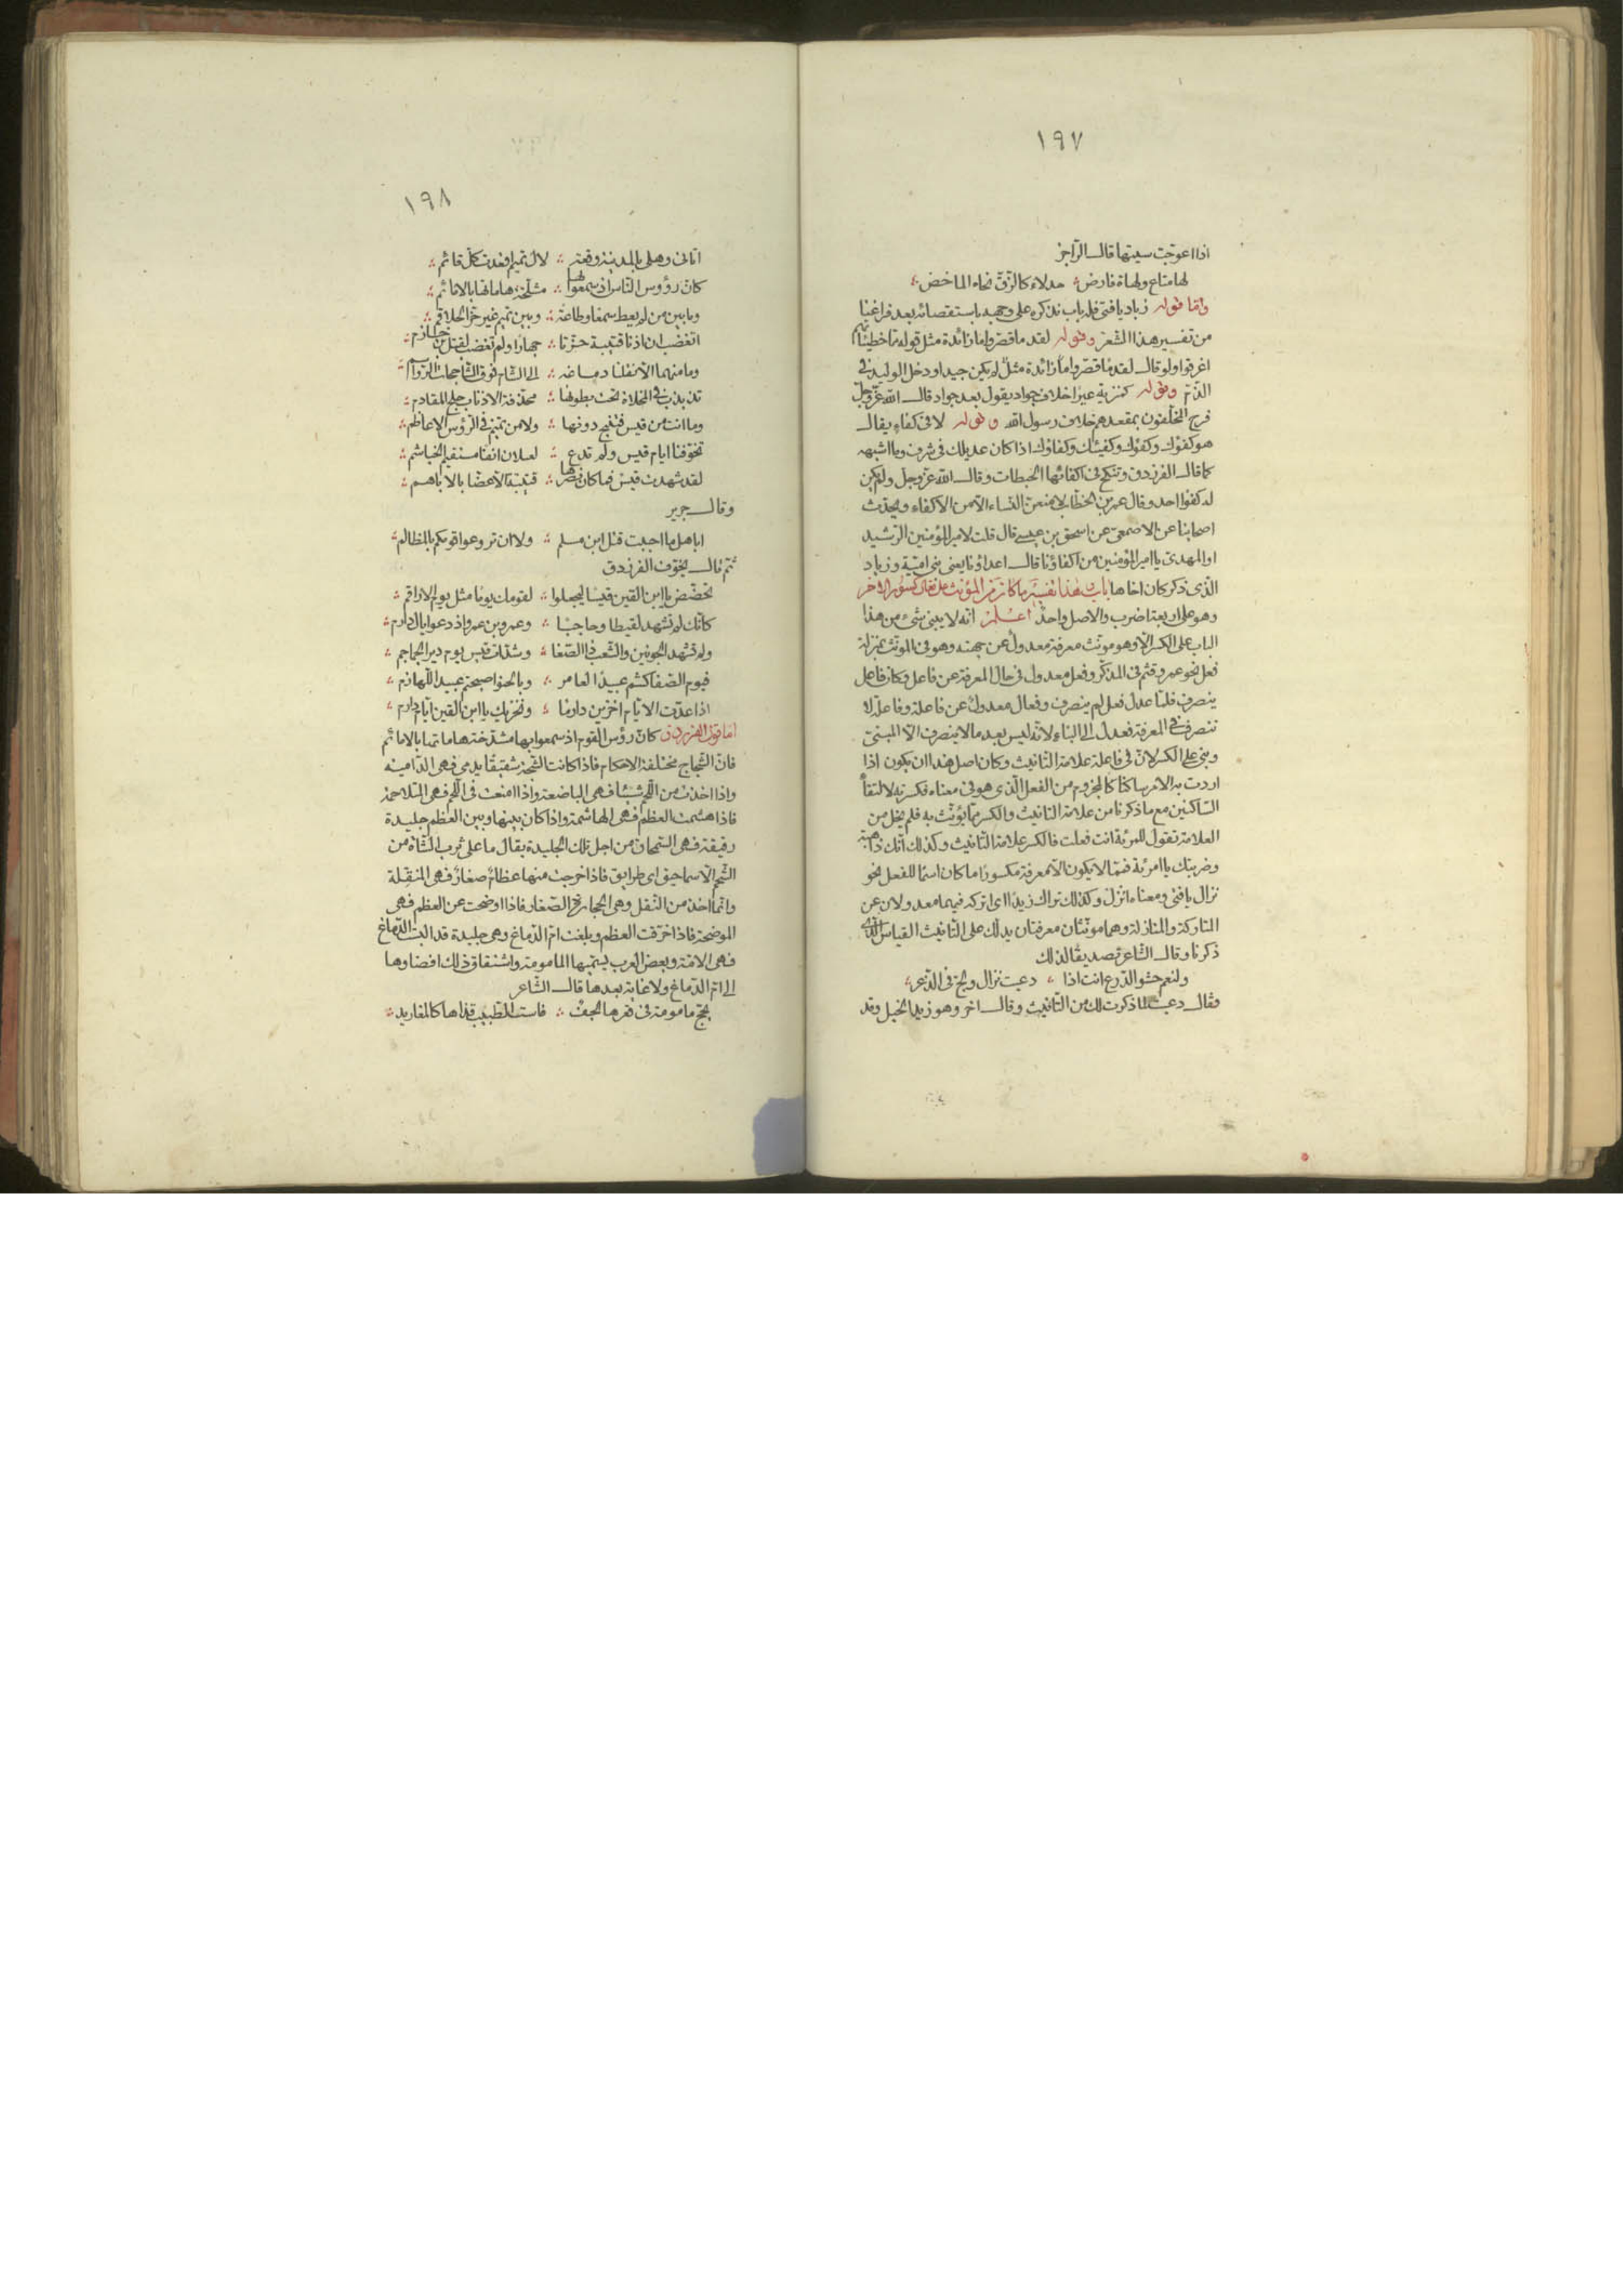 ١٩٧
اذا اعوجت سيتها قالــ الراجز
لها متاع ولهاة فارض ؞ حدلاء كالزق نحاه الماخض ؞
وامّا قوله زياد يا فتى فله باب نذكره على وجهه باستقصائه بعد فراغنا
من تفسير هذا الشعر وقوله لقد ما قصروا ما زائدة مثل قوله مما خطيئاتهم
اغرقوا ولو قالــ لقدما قصروا ما زائدة مثل لم يكن جيدا ودخل الوليد في
الذم وقوله كمنزية عيرا خلاف جواد يقول بعد جواد قالــ الله عز وجل
فرح المخلفون بمقعدهم خلاف رسول الله وقوله لا في كفاء يقالــ
هو كفؤك وكفؤك وكفيئك وكفاؤك اذا كان عديلك في شرف وما اشبهه
كما قالــ الفرزدق وتنكح في اكفائها الحبطات وقالــ الله عز وجل ولم يكن
له كفوا احد وقال عمر بن الخطاب لامنعن النساء الا من الاكفاء ويحدث
اصحابنا عن الاصمعي عن اسحق بن عيسى قال قلت لامير المؤمنين الرشيد
او المهدى يا امير المؤمنين من اكفاؤنا قالــ اعداؤنا يعنى بنى امية وزياد
الذى ذكر كان اخاها باب هذا تفسير ما كان من المؤنث على فعال مكسور الاخر
وهو على اربعة اضرب والاصل واحد اعلم انه لا يبنى شئ من هذا
الباب على الكسر الا وهو مونث معرفة معدول عن جهته وهو في المونث بمنزلة
فعل نحو عمر وقثم في المذكر وفعل معدول في حال المعرفة عن فاعل وكان فاعل
ينصرف فلما عدل فعل لم ينصرف وفعال معدول عن فاعلة وفاعلة لا
تنصرف في المعرفة فعدل الى البناء لانه ليس بعد ما لا ينصرف الا المبنى
وبنى على الكسر لان في فاعلة علامة التانيث وكان اصل هذا ان يكون اذا
اردت به الامر ساكنا كالمجزوم من الفعل الذى هو في معناه فكسرته لالتقاء
الساكنين مع ما ذكرنا من علامة التانيث والكسر مما يؤنث به فلم يخل من
العلامة تقول للمرئة انت فعلت فالكسر علامة التانيث وكذلك انك ذاهبة
وضربتك يا امرئة فمما لا يكون الا معرفة مكسورا ما كان اسما للفعل نحو
نزال يا فتى ومعناه انزل وكذلك تراك زيدا اى اتركه فهما معدولان عن
المتاركة والمنازلة وهما مونثان معرفتان يدلك على التانيث القياس الذى
ذكرنا وقالــ الشاعر تصديقا لذلك
ولنعم حشو الدرع انت اذا ؞ دعيت نزال ولج في الذعر ؞
وقالــ دعيت لما ذكرت لك من التانيث وقالــ اخر وهو زيد الخيل وقد
١٩٨
اتانى وهلى بالمدينة وقعة ؞ لال تميم اقعدت كل قائم ؞
كان رؤوس الناس اذ سمعوا لها ؞ مشدخة هاماتها بالامائم ؞
وما بين من لم يعط سمعا وطاعة ؞ وبين تميم غير حز الحلاقم ؞
اتغضب ان اذنا قتيبة حزتا ؞ جهارا ولم تغضب لقتل ابن خازم ؞
وما منهما الا نقلنا دماغه ؞ الى الشام فوق الشاحجات الرواسم ؞
تذبذب في المخلاة تحت بطونها ؞ محذفة الاذناب جلح المقادم ؞
وما انت من قيس فتنبح دونها ؞ ولا من تميم في الرؤس الاعاظم ؞
تخوفنا ايام قيس ولم تدع ؞ لعيلان انفا مستقيم الخياشم ؞
لقد شهدت قيس فما كان نصرها ؞ قتيبة الا عضا بالاباهم ؞
وقالــ جرير
اباهل ما احببت قتل ابن مسلم ؞ ولا ان تروعوا قومكم بالمظالم ؞
ثم قالــ يخوف الفرزدق
تحضض يا ابن القين قيسا ليجعلوا ؞ لقومك يوما مثل يوم الاراقم ؞
كانك لم تشهد لقيطا وحاجبا ؞ وعمرو بن عمرو اذ دعوا يال دارم ؞
ولم تشهد الجونين والشعب ذا الصفا ؞ وشدات قيس يوم دير الجماجم ؞
فيوم الصفا كنتم عبيدا لعامر ؞ وبالحنو اصبحتم عبيد اللهازم ؞
اذا عدت الايام اخزين دارما ؞ وتخزيك يا ابن القين ايام دارم ؞
اما قول الفرزدق كان رؤس القوم اذ سمعوا بها مشدخة هاماتها بالامائم
فان الشجاج مختلفة الاحكام فاذا كانت الشجة شقيقا يدمى فهى الدامية
واذا اخذت من اللحم شيئا فهى الباضعة واذا امعنت فى اللحم فهى المتلاحمة
فاذا هشمت العظم فهى الهاشمة واذا كان بينها وبين العظم جليدة
رقيقة فهى السمحاق من اجل تلك الجليدة يقال ما على ثرب الشاة من
الشحم الا سماحيق اى طرايق فاذا خرجت منها عظام صغار فهى المنقلة
وانما اخذ من النقل وهى الحجارة الصغار فاذا اوضحت عن العظم فهى
الموضحة فاذا خرقت العظم وبلغت ام الدماغ وهى جليدة قد البست الدماغ
فهى الامة وبعض العرب يسميها المامومة واشتقاق ذلك افضاوها
الى ام الدماغ ولا غاية بعدها قالــ الشاعر
يحج مامومة فى قعرها لجف ؞ فاست الطبيب قذاها كالمغاريد ؞